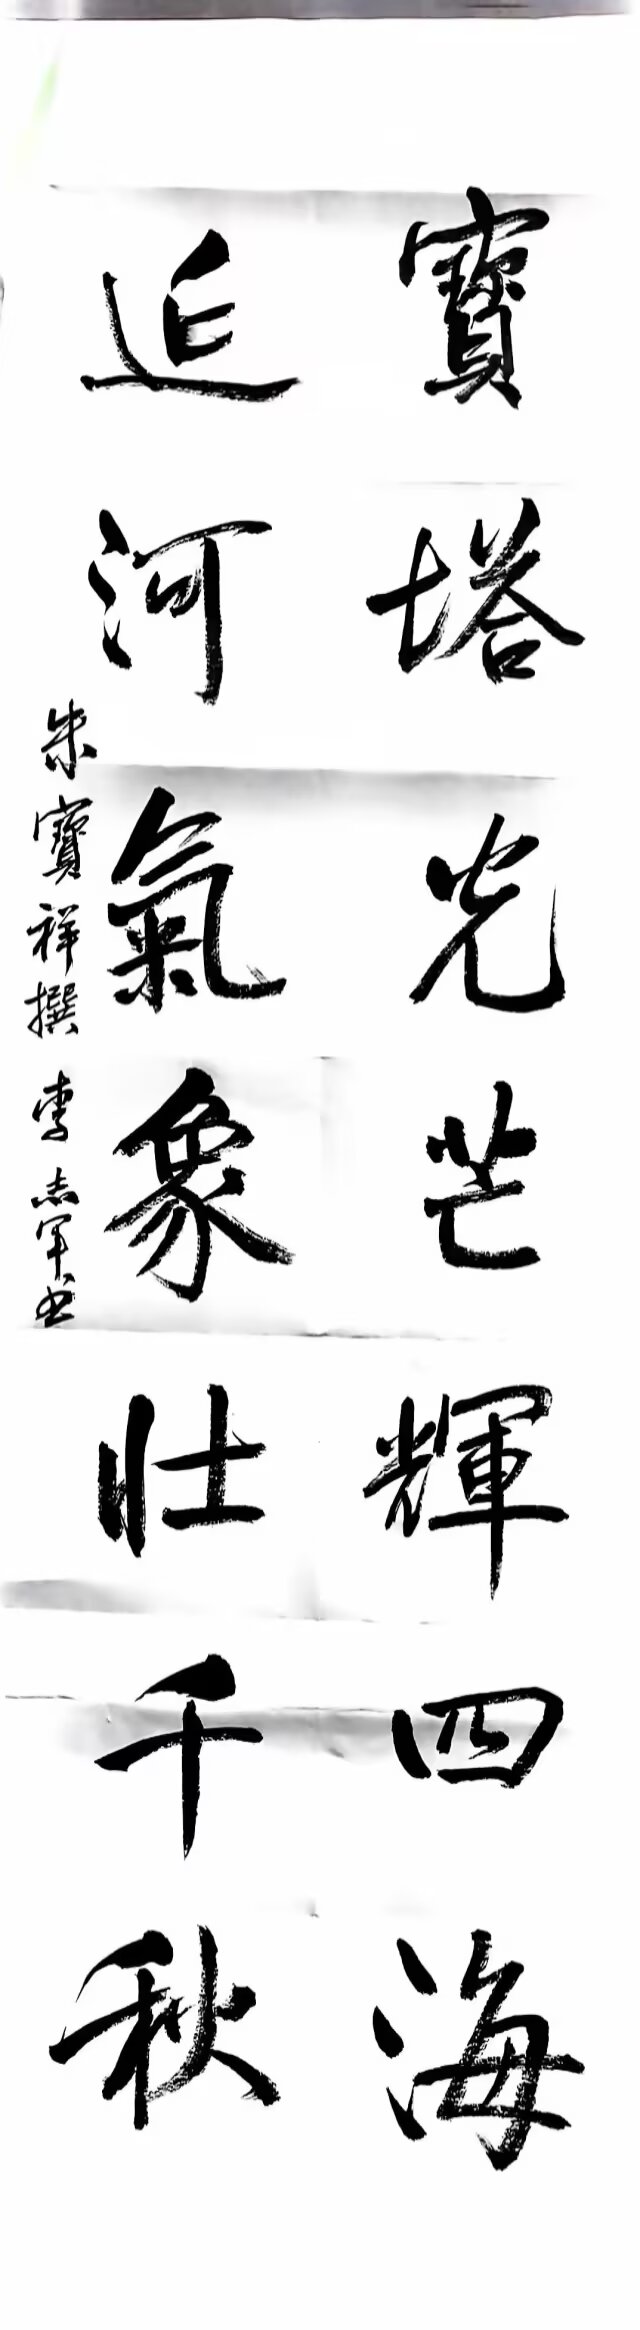 寶塔光芒輝四海
延河氣象壯千秋
朱寶祥撰 李志军书